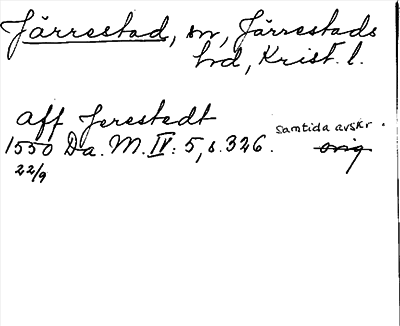 Järrestad, sn, Järrestads
hd, Krist. l.
aff Jerestedt
1550 Da. M. IV: 5, s. 326. samtida avskr.
22/9 orig